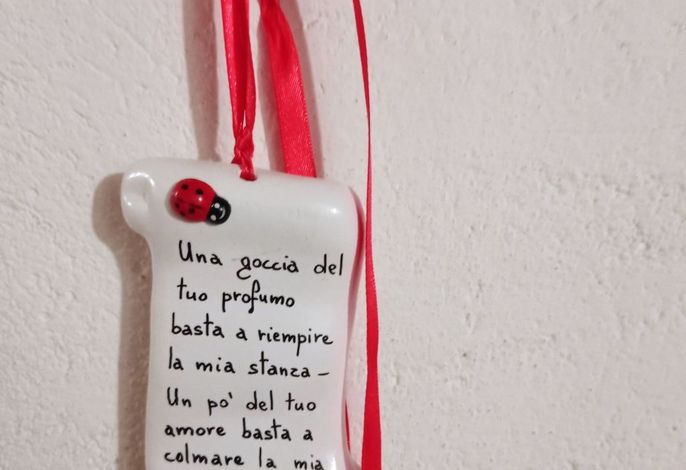 Una goccia del
tuo profumo
basta a riempire
la mia stanza -
Un po' del tuo
amore basta a
colmare la mia